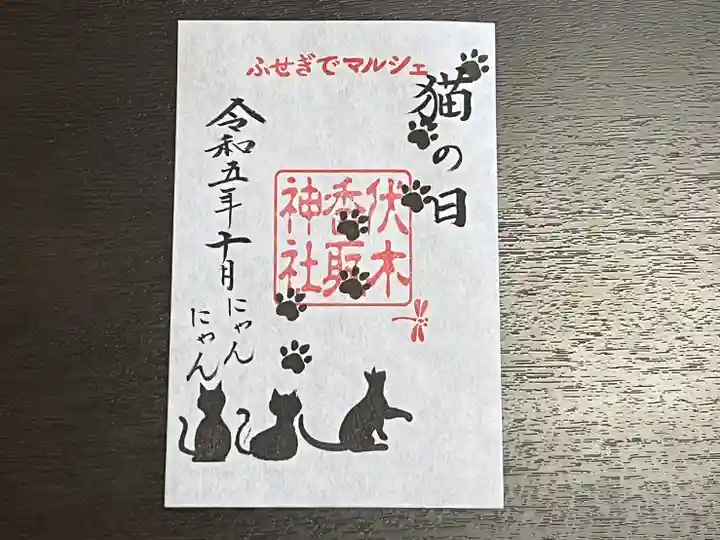 ふせぎでマルシェ
猫の日
伏木
香取
神社
令和五年十月にゃん
にゃん